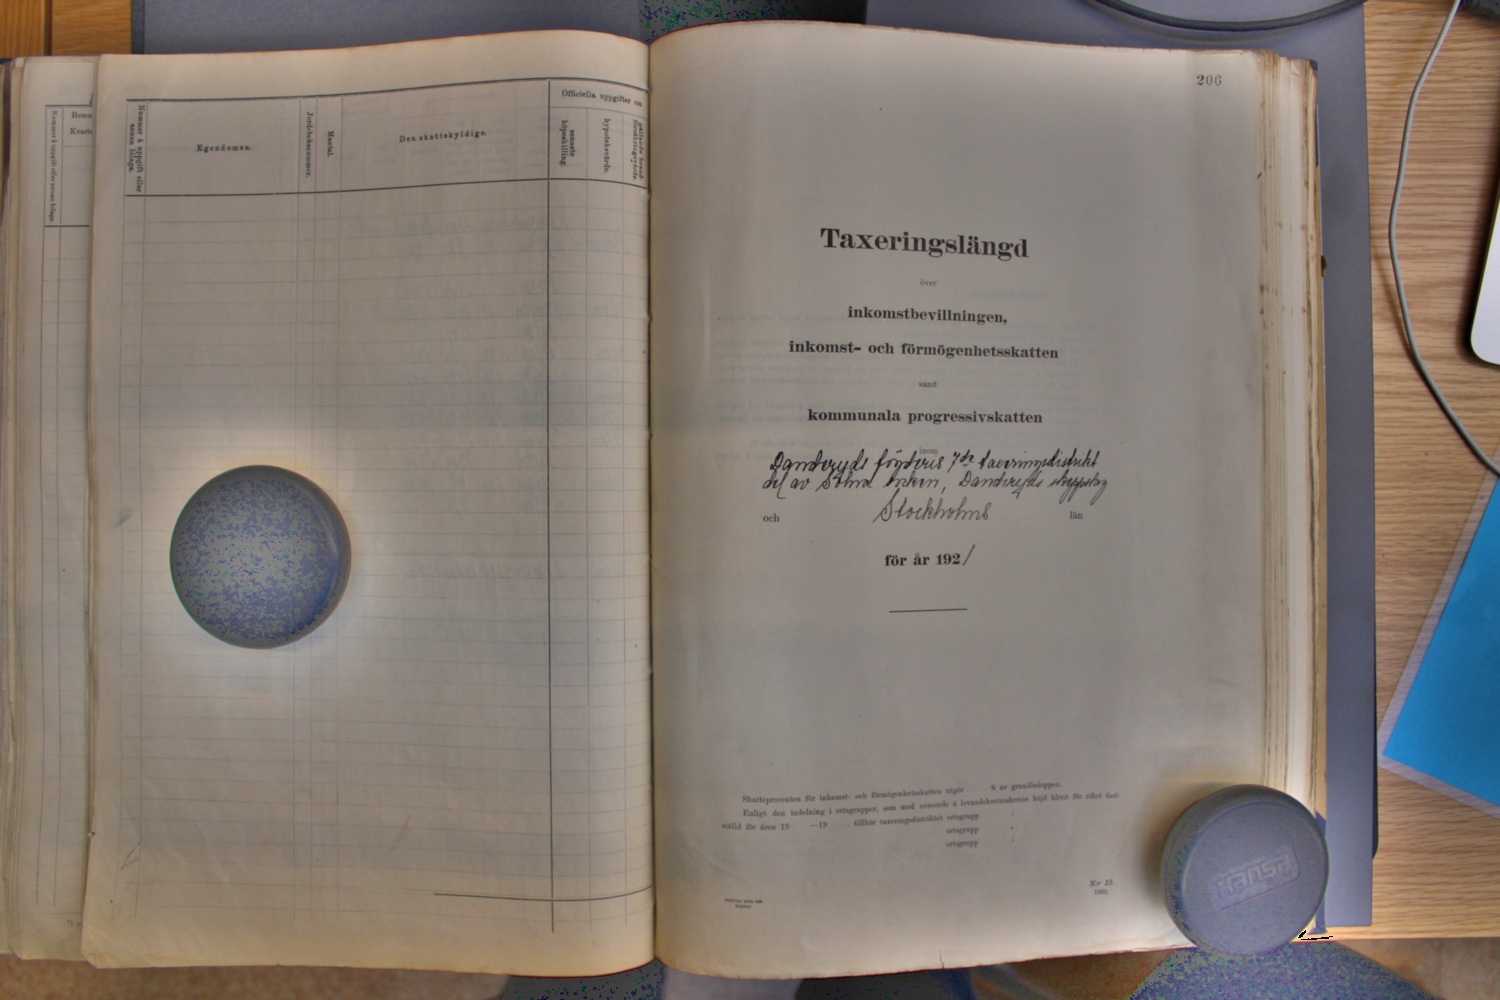 Nummer å uppgift eller
annan bilaga.
Kvarte
Nummer å uppgift eller
annan bilaga.
Egendomen.
Jordeboksnummer.
Mantal.
Den skattskyldige.
Officiella uppgifter om
senaste
köpeskilling.
hypoteksvärde.
206
Taxeringslängd
över
inkomstbevillningen,
inkomst- och förmögenhetsskatten
samt
kommunala progressivskatten
inom
Danderyds fögderis 7de taxeringsdistrikt
del av Solna socken, Danderyds skeppslag
och Stockholms län
för år 1921
Skatteprocenten för inkomst- och förmögenhetsskatten utgör % av grundbeloppen.
Enligt den indelning i ortsgrupper, som med avseende å levnadskostnadernas höjd blivit för riket fast-
ställd för åren 19 —19 , tillhör taxeringsdistriktet ortsgrupp
ortsgrupp
ortsgrupp
1920.
Hansa